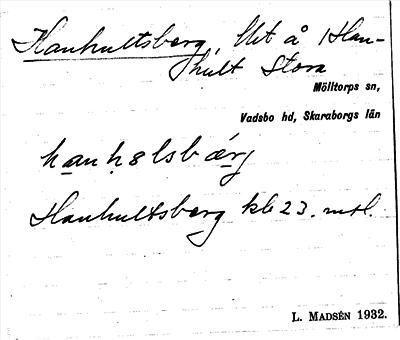 Hanhultsberg, lht å Han-
hult Stora
Mölltorps sn,
Vadsbo hd, Skaraborgs län
Hanhultsberg kb 23. mtl.
L. MADSÉN 1932.